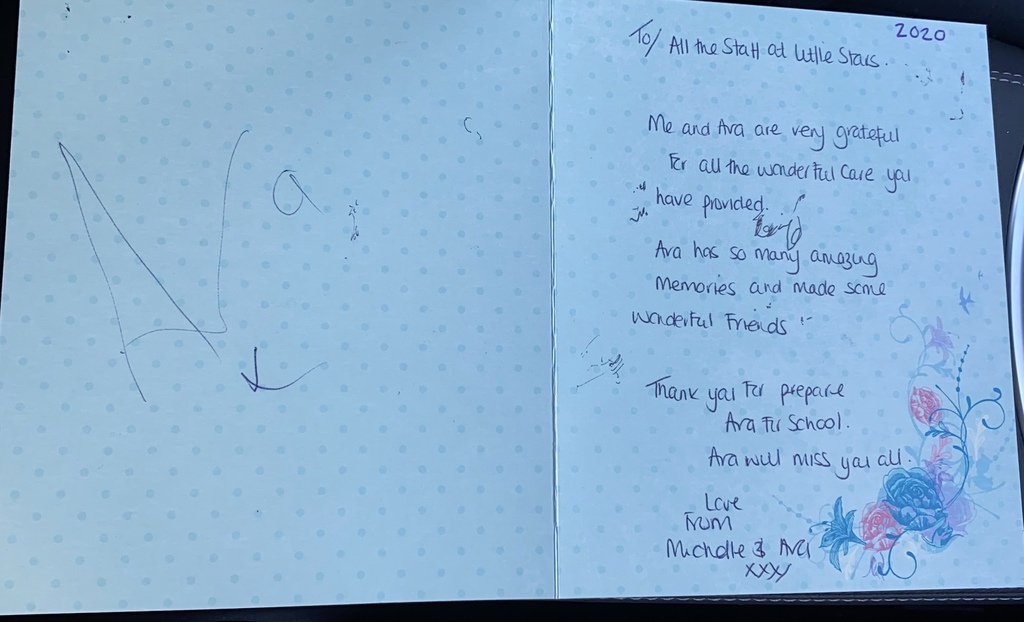 2020
To/ All the Staff at Little Stars.
Me and Ava are very grateful
For all the wonderful care you
have provided.
Ava has so many amazing
Memories and made some
wonderful Friends
Thank you For prepare
Ava For School.
Ava will miss you all.
Love
From
Michelle & Ava
xxx